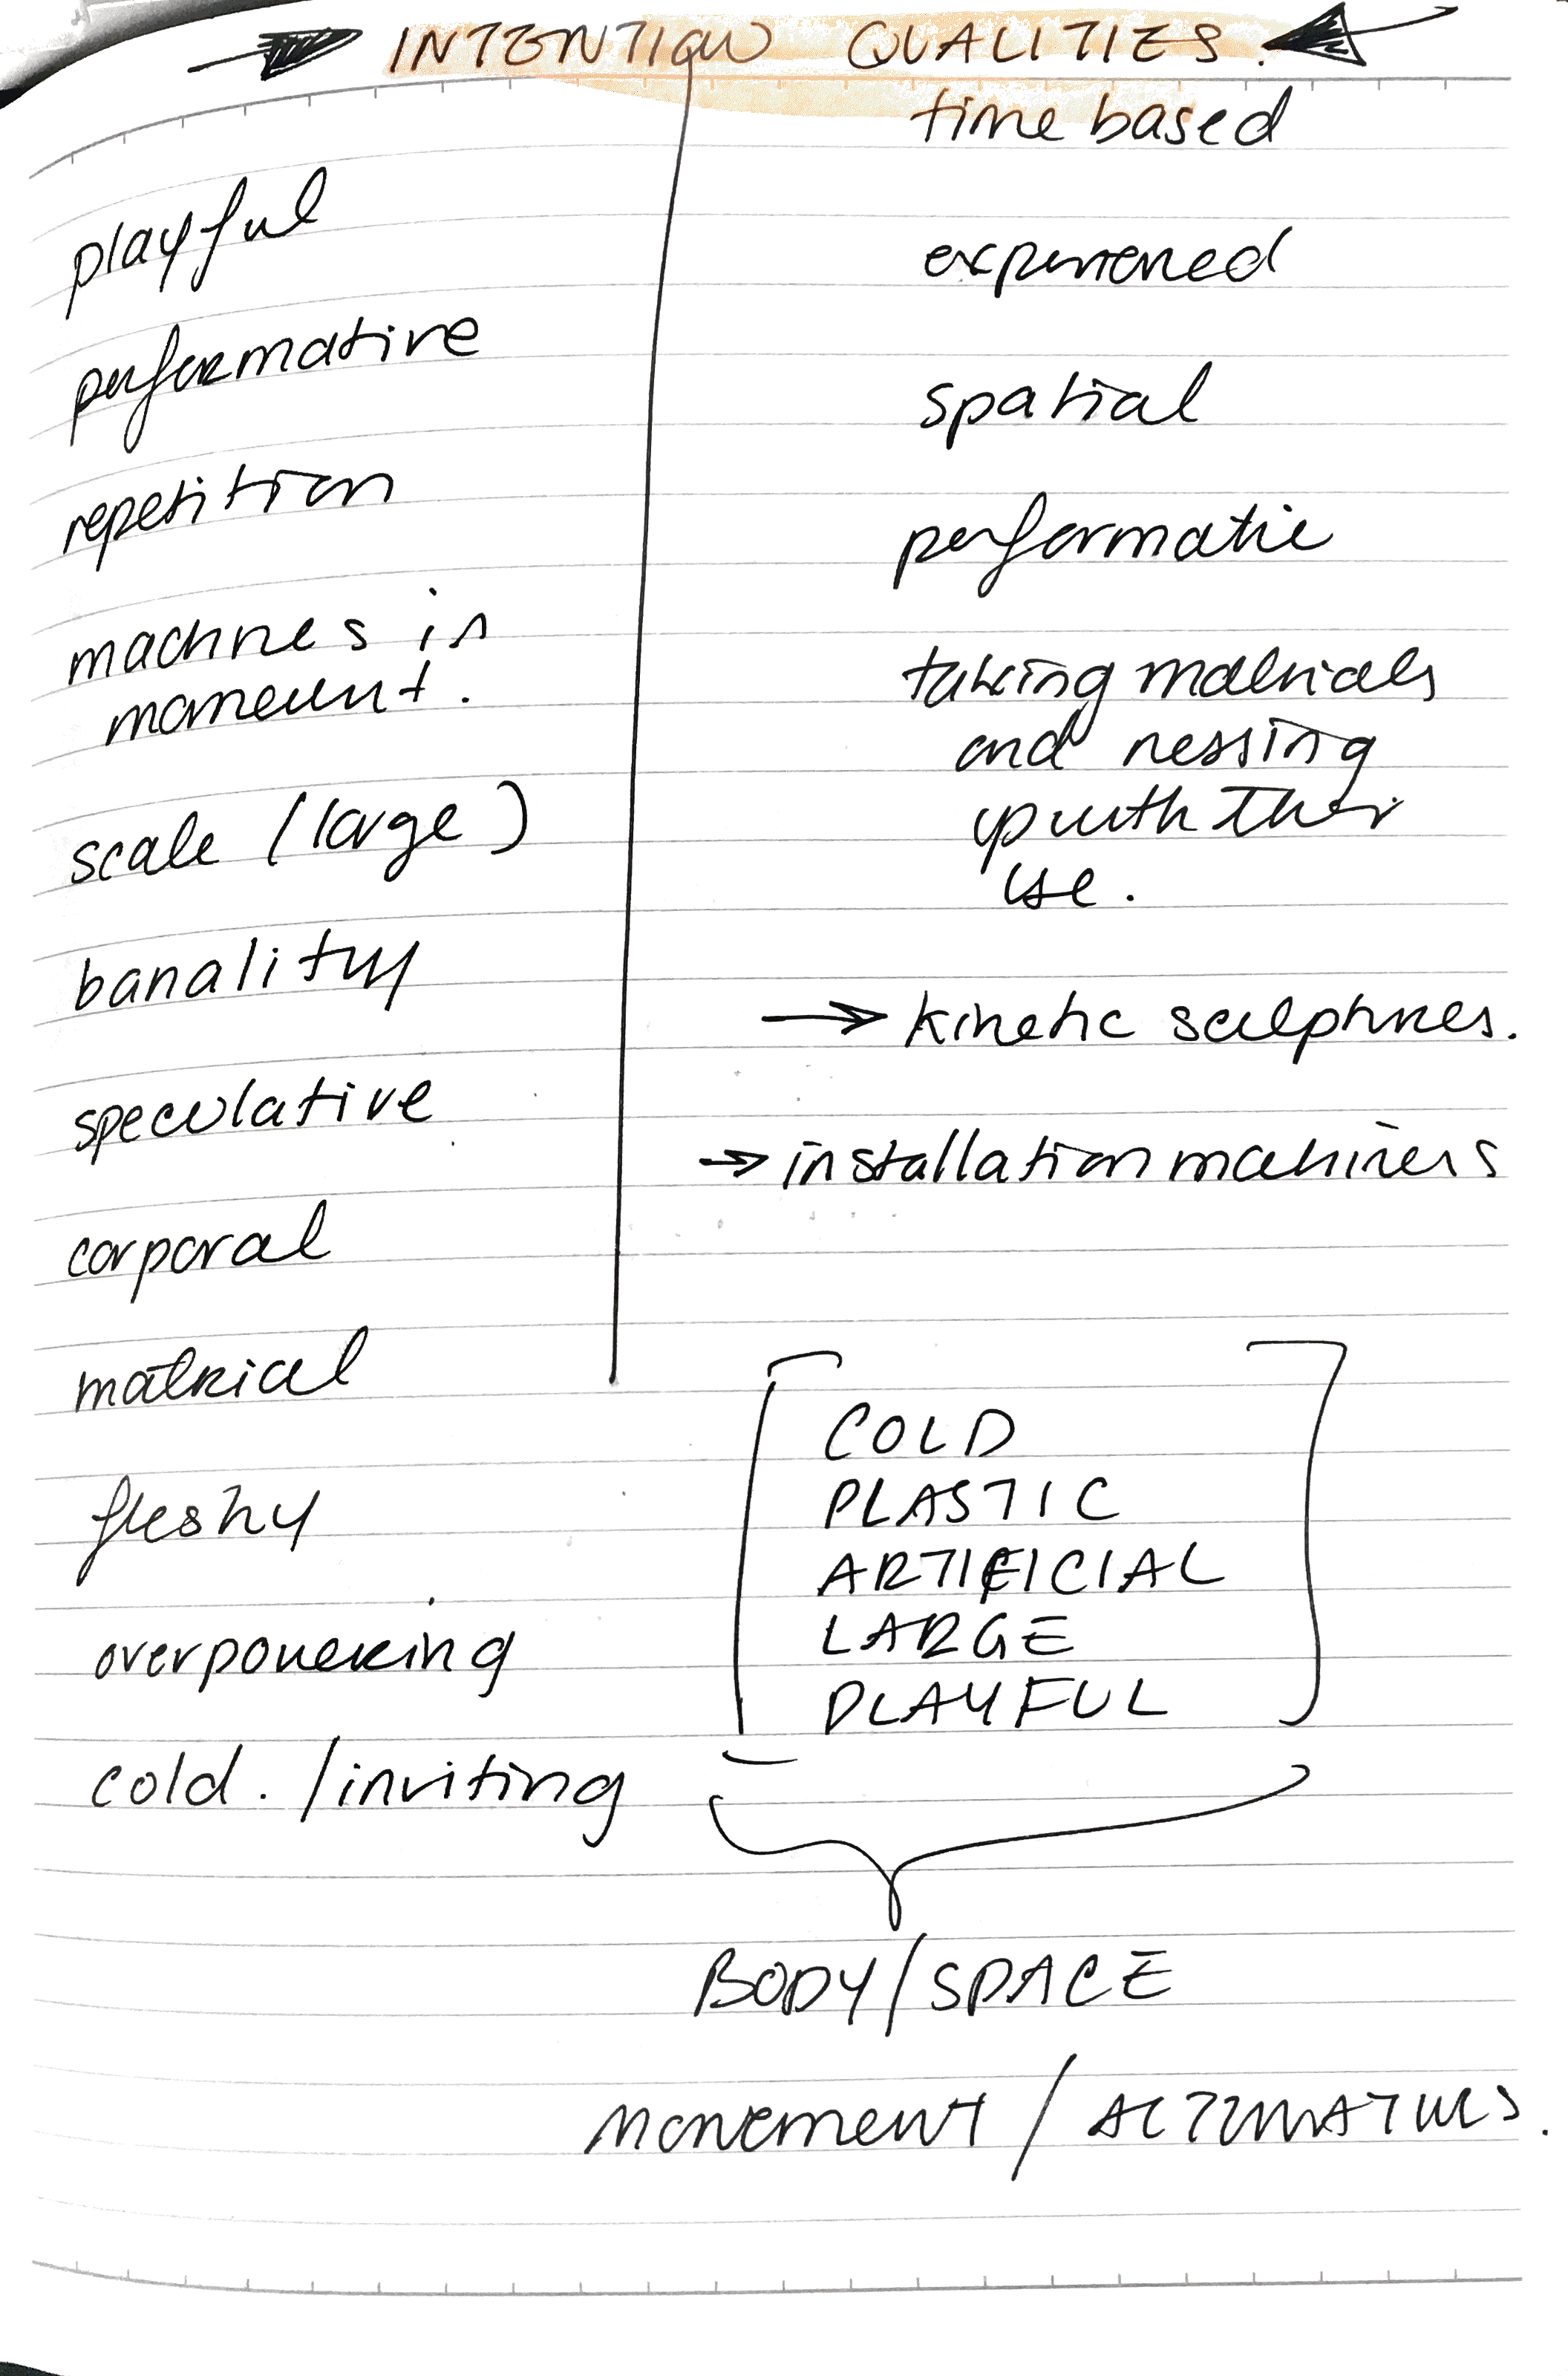 INTENTION QUALITIES.
playful
performative
repetition
machines in
movement.
scale (large)
banality
speculative
corporal
material
fleshy
overpowering
cold. /inviting
time based
experienced
spatial
performatic
taking materials
and messing
up with their
use.
→ kinetic sculptures.
→ installation machines
COLD
PLASTIC
ARTIFICIAL
LARGE
PLAYFUL
BODY/SPACE
MOVEMENT / ALTERNATIVES.